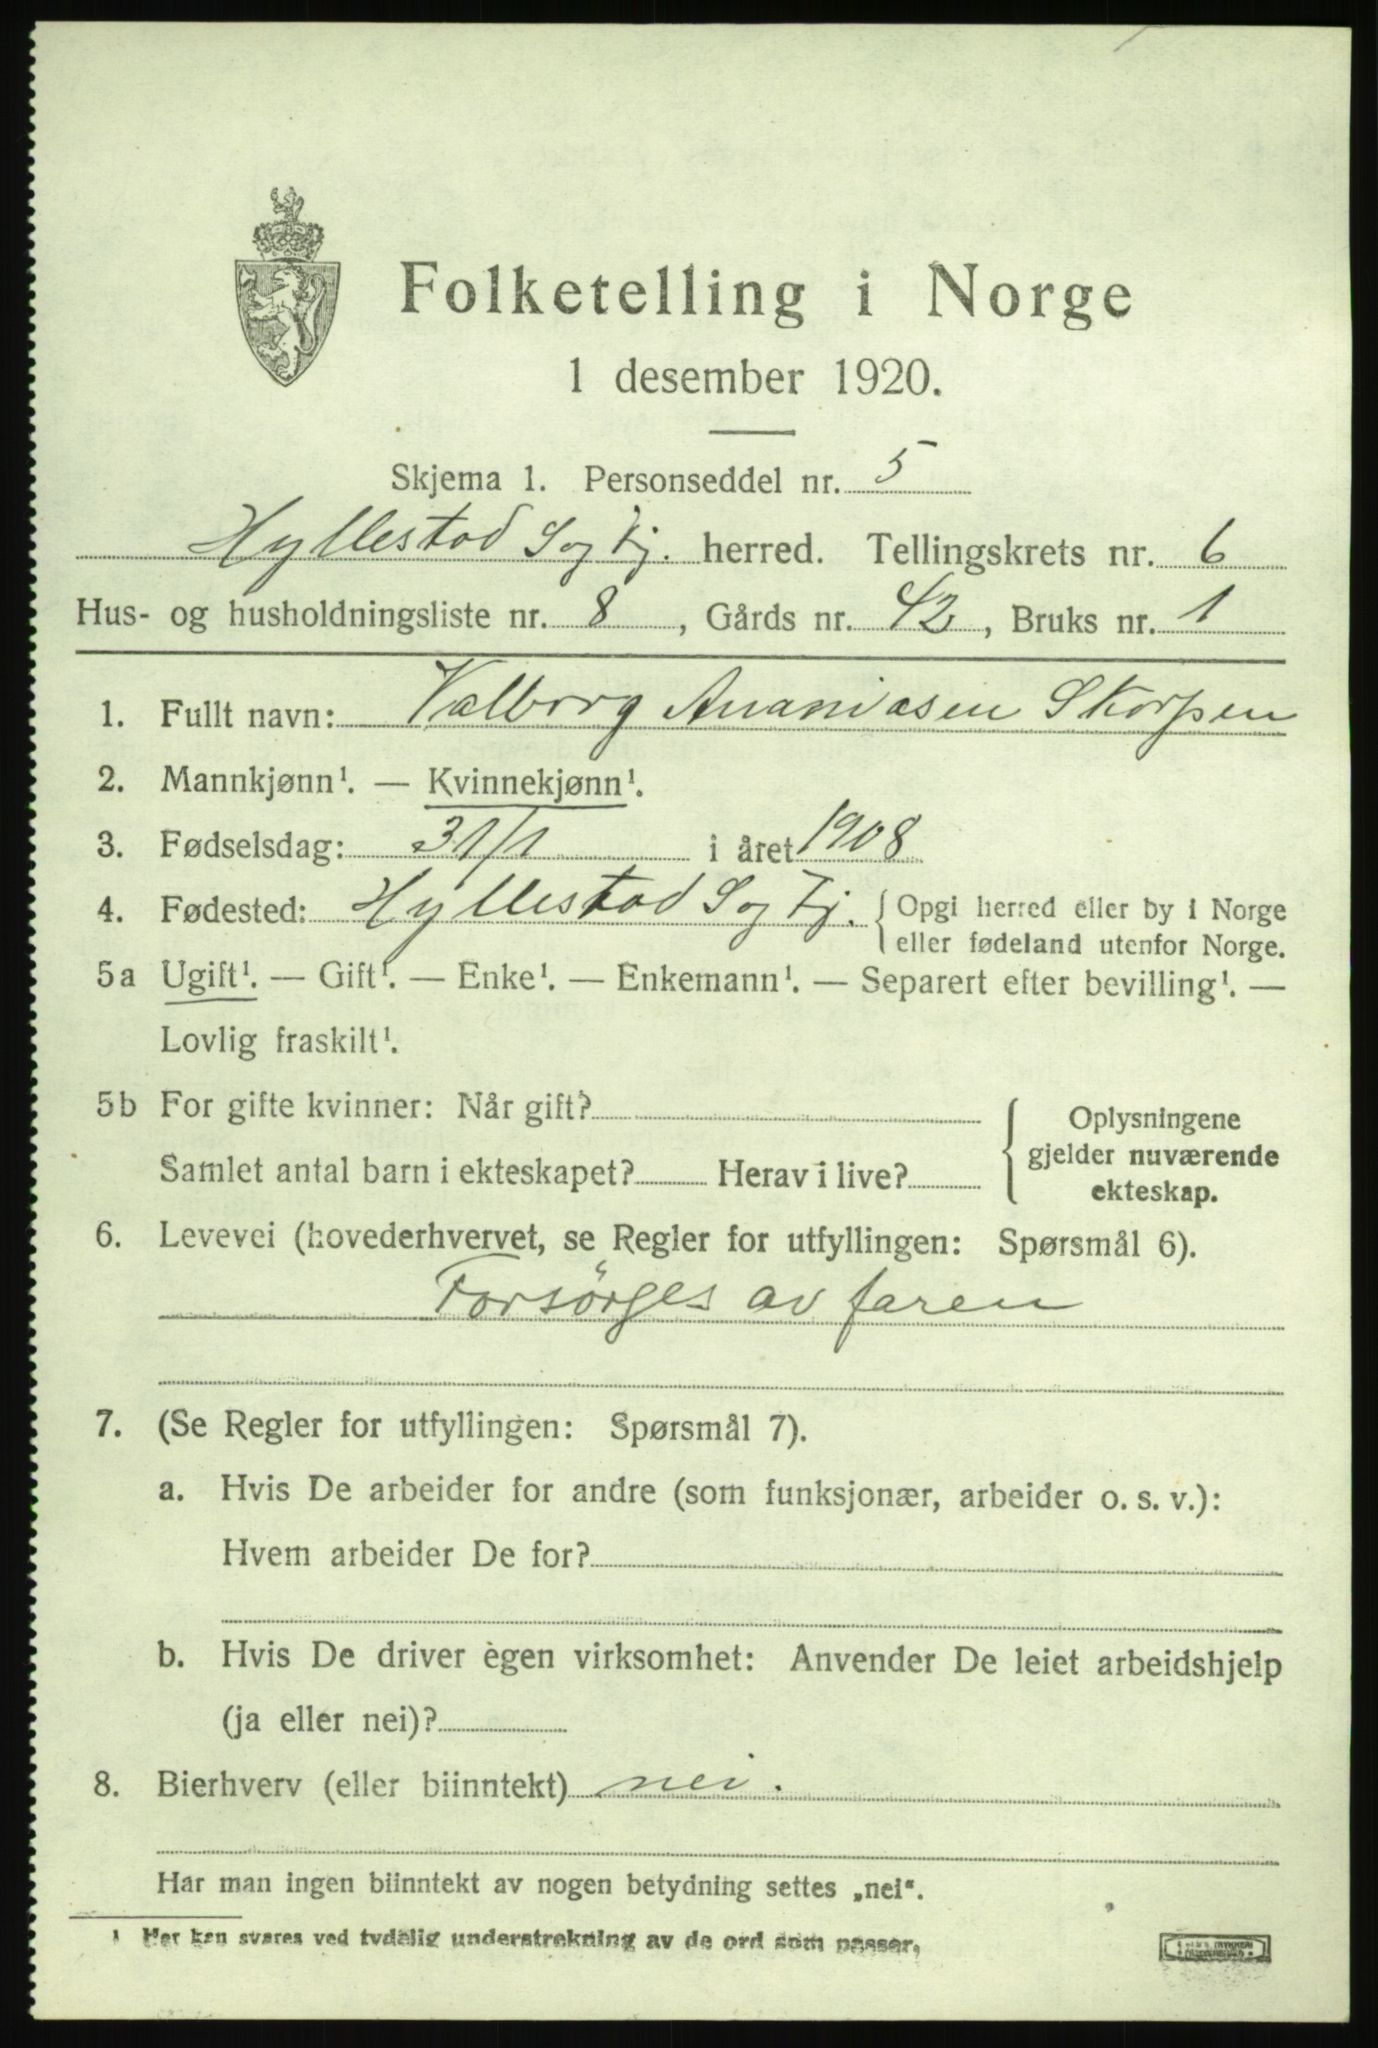 Folketelling i Norge
1 desember 1920.
Skjema 1. Personseddel nr. 5
Hyllestad Sogfj. herred. Tellingskrets nr. 6
Hus- og husholdningsliste nr. 8, Gårds nr. 42, Bruks nr. 1
1. Fullt navn: Valborg Ananiasen Skorpen
2. Mannkjønn¹. — Kvinnekjønn¹.
3. Fødselsdag: 31/1 i året 1908
4. Fødested: Hyllestad Sogfj. { Opgi herred eller by i Norge
eller fødeland utenfor Norge.
5a Ugift¹. — Gift¹. — Enke¹. — Enkemann¹. — Separert efter bevilling¹. —
Lovlig fraskilt¹.
5b For gifte kvinner: Når gift?
Samlet antal barn i ekteskapet? Herav i live?
Oplysningene
gjelder nuværende
ekteskap.
6. Levevei (hovederhvervet, se Regler for utfyllingen: Spørsmål 6).
Forsörges av faren
7. (Se Regler for utfyllingen: Spørsmål 7).
a. Hvis De arbeider for andre (som funksjonær, arbeider o. s. v.):
Hvem arbeider De for?
b. Hvis De driver egen virksomhet: Anvender De leiet arbeidshjelp
(ja eller nei)?
8. Bierhverv (eller biinntekt) nei.
Har man ingen biinntekt av nogen betydning settes „nei“.
¹ Her kan svares ved tydelig understrekning av de ord som passer.